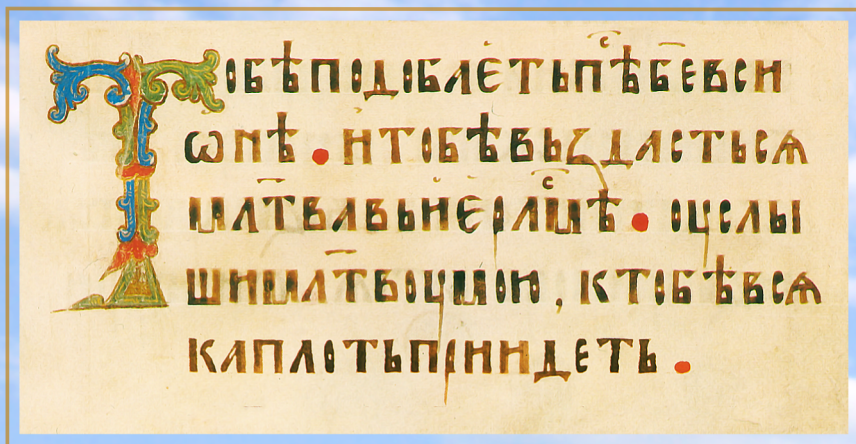 Тобѣподобаѥтьпѣⷭ҇б҃евси
ѡнѣ · итобѣвьздастьсѧ
млт҃вавьиерлмⷭ҇ѣ · оуслы
шимлт҃воумою, ктобѣвсѧ
каплотьприидеть ·